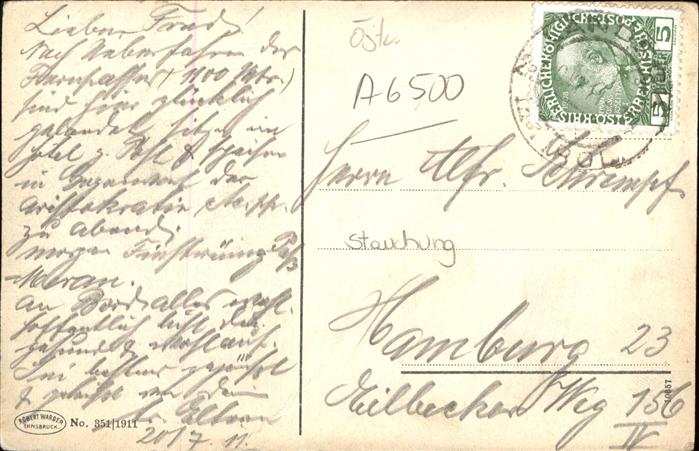 Lieber Fredi!
Nach Ueberfahren des
Fernpasses (1100 Mtr.)
sind hier glücklich
gelandet sitzen im
Hotel z. Post & speisen
in Gegenwart der
Aristokratie
zu abend.
morgen Finstermünz Paß
Meran.
an Bord alles wohl.
hoffentlich bist du
gesund & wohlauf.
Sei bestens gegrüßt
& geküßt von dein
Eltern
20/7. 11.
ROBERT WARGER
INNSBRUCK.
No. 351|1911
Östr.
A6500
KAISERLICHE KÖNIGLICHE ÖSTERREICHISCHE POST
5 HELLER 5
LANDECK
TIROL
Herrn Alfr. Schrempf
Stauchung
Hamburg 23
Eilbecker Weg 156
IV
10857